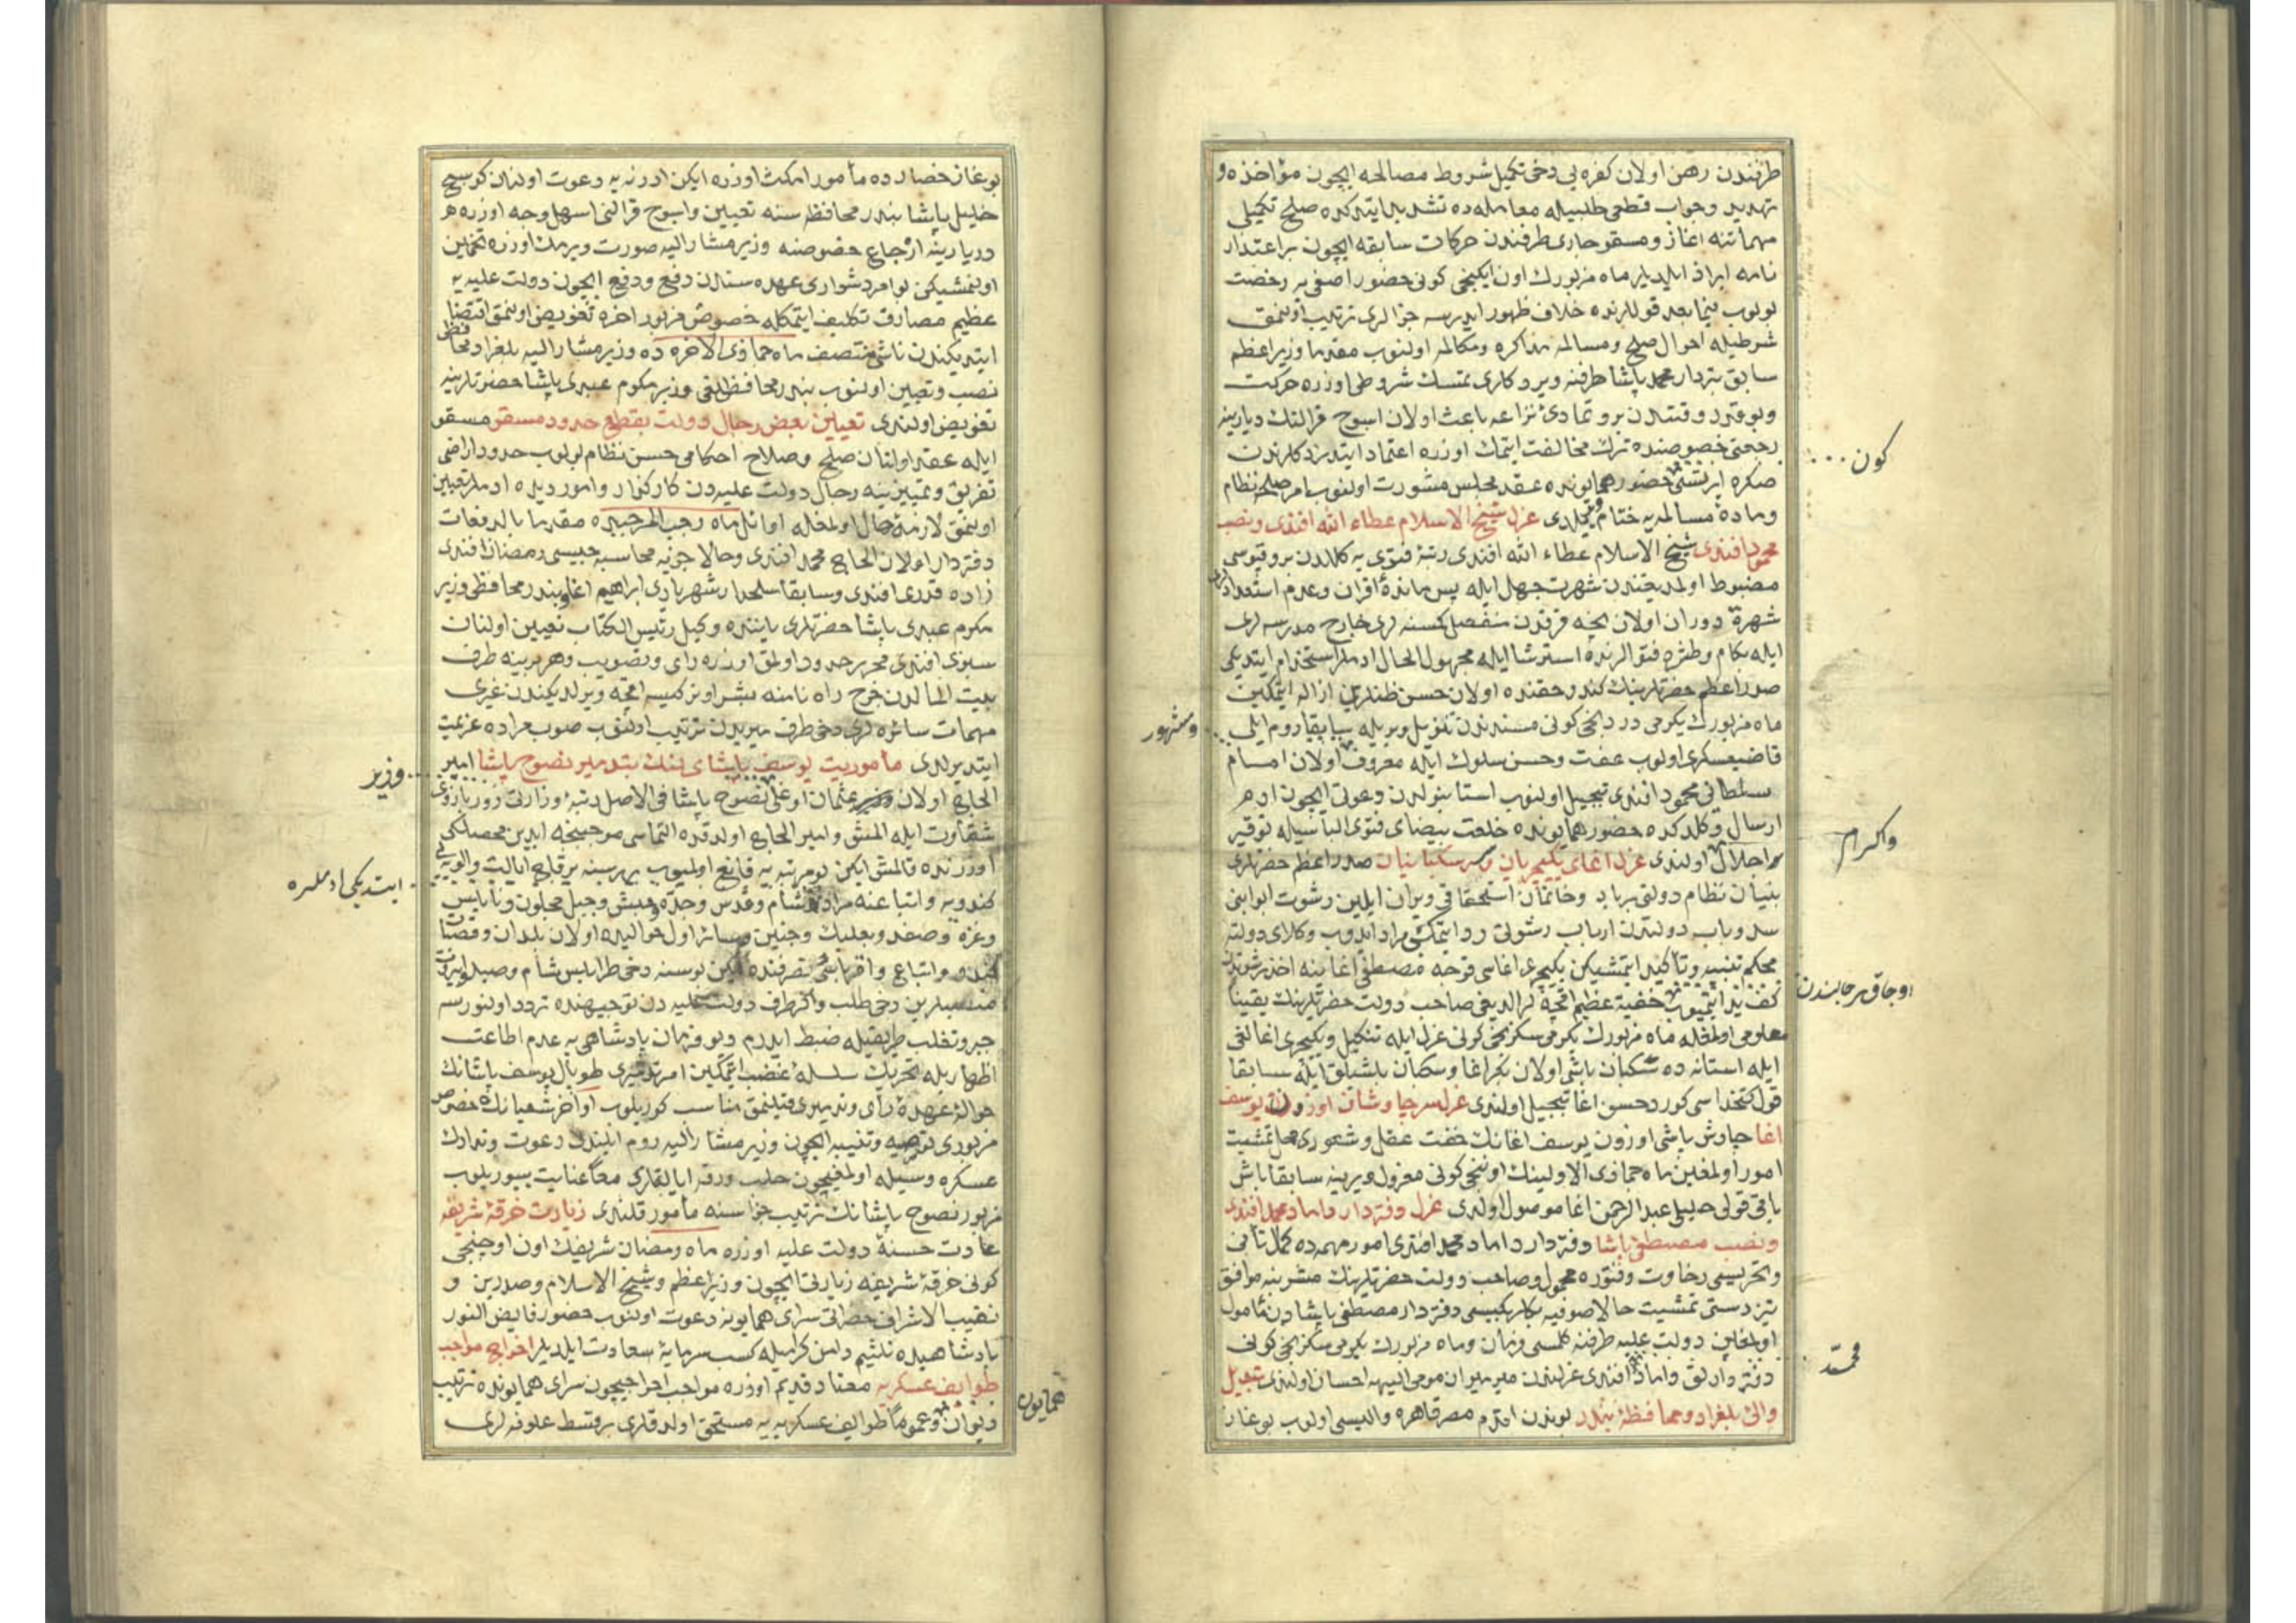 طرفندن رهن اولان كفره يى دخى تكميل شروط مصالحه ايچون مؤاخذه و
تهديد وجواب قطعى طلبيله معامله ده تشديد ايتدكده صلح تكميلى
مهماتنه اغاز ومسقو جارى طرفندن حركات سابقه ايچون براعتذار
نامه ابراز ايلديلر ماه مزبورك اون ايكنجى كونى حضور اصفى يه رخصت
بولوب فيما بعد قوللرنده خلاف ظهور ايدرسه جزالرى ترتيب اولنمق
شرطيله احوال صلح ومسالمه مذاكره ومكالمه اولنوب مقدما وزير اعظم
سابق محمد پاشا طرفنه ويرد كارى تمسك شروطى اوزره حركت
وبوقدر وقتدن برو تمادئ نزاعه باعث اولان اسوج قرالنك ديارينه
رجعتى خصوصنده ترك مخالفت ايتمك اوزره اعتماد ايتدردكلرندن
صكره ايرتسى حضور همايونده عقد مجلس مشورت اولنوب امر صلحه نظام
وماده مسالمه يه ختام ويرلدى عزل شيخ الاسلام عطاء الله افندى ونصب
محمود افندى شيخ الاسلام عطاء الله افندى رتبۀ فتوى يه كلدن برو فتوسى
مضبوط اولمديغندن شهرت جهل ايله پس ماندۀ اقران وعدم استعداد
شهرۀ دوران اولان نجه فرقدن منفصل كسنه لرى خارج مدرسه لرى
ايله بكام وطشره فتوالرنده استرشا ايله مجهول الحال ادملر استخدام ايتديكى
صدر اعظم حضرتلرينك كندو حقنده اولان حسن ظندرين ازاله ايتمكين
ماه مزبورك يكرمى دردنجى كونى مسندندن تنزيل وبريله سابقا روم ايلى
قاضيعسكرى اولوب عفت وحسن سلوك ايله معروف اولان امام
سلطانى محمود افندى تبجيل اولنوب استانبولدن دعوتى ايچون ادم
ارسال وكلدكده حضور همايونده خلعت بيضاى فتوى الباسيله توقير
واجلال اولندى عزل اغاى يكيچريان وسر سكبانيان صدر اعظم حضرتلرى
بنيان نظام دولتى برباد وخانمان استحقاقى ويران ايلين رشوت ابوابنى
سد وباب دولتدن ارباب رشوتى رد ايتمكى مراد ايدوب وكلاى دولته
محكم تنبيه وتأكيد ايتمشيكن يكيچرى اغاسى قوجه مصطفى اغا ينه اخذ رشوتدن
كف يد ايتميوب خفية عظيم اقچه لر الديغى صاحب دولت حضرتلرينك يقينا
معلومى اولمغله ماه مزبورك يكرمى سكزنجى كونى عزل ايله تنكيل ويكيچرى اغالغى
ايله استانه ده سكبان باشى اولان بكر اغا وسكبان باشيلق ايله سابقا
قول كتخداسى كورد حسن اغا تبجيل اولندى عزل سرچاوشان اوزون يوسف
اغا چاوش باشى اوزون يوسف اغانك خفت عقل وشعورى مخل تمشيت
امور اولمغين ماه جماذى الاولينك اوننجى كونى معزول ويرينه سابقا باش
باقى قولى عبد الرحمن اغا موصول اولدى عزل دفتردار داماد محمد افندى
ونصب مصطفى پاشا دفتردار داماد محمد افندى امور مهمه ده كمال تأنى
رخاوت وفتوره محمول وصاحب دولت حضرتلرينك مشربنه موافق
تيز دستى تمشيت حالا صوفيه بكلربكيسى دفتردار مصطفى پاشادن مأمول
اولمغين دولت عليه طرفنه كلمسى فرمان وماه مزبورك يكرمى سكزنجى كونى
دفتردارلق داماد افندى عزلندن ميرميران مومى اليهه احسان اولندى تبديل
والئ بلغراد ومحافظۀ بندر بوندن اقدم مصر قاهره واليسى اولوب بوغاز
كون
ومشهور
واكرام
اوجاق رجالندن
محمد
بوغاز حصارده مأمور مكث اوزره ايكن ادرنه يه دعوت اولنان كوسج
خليل پاشا بندر محافظه سنه تعيين واسوج قرالنى اسهل وجه اوزره
ديارينه ارجاع خصوصنه وزير مشار اليه صورت ويرمك اوزره تخمين
اولنمشيكن بو امر دشوارى عهده سندن دفع ورفع ايچون دولت عليه يه
عظيم مصارف تكليف ايتمكله خصوص مزبور اخره تفويض اولنمق اقتضا
ايتديكندن ناشى منتصف ماه جماذى الاخره ده وزير مشار اليه بلغراد محافظ
نصب وتعيين اولنوب بندر محافظه لغى وزير مكرم عبدى پاشا حضرتلرينه
تفويض اولندى تعيين بعض رجال دولت بقطع حدود مسقو مسقو
ايله عقد اولنان صلح وصلاح احكامى حسن نظام بولوب حدود اراضى
تفريق وتمييزينه رجال دولت عليه دن كاركذار وامور ديده ادملر تعيين
اولنمق لازمۀ حال اولمغله اوائل ماه رجب المرجبده مقدما بالدفعات
دفتردار اولان الحاج محمد افندى وحالا جزيه محاسبه جيسى رمضان افندى
زاده قدرى افندى وسابقا سلحدار شهريارى ابراهيم اغا وبندر محافظى وزير
مكرم عبدى پاشا حضرتلرى ياننده وكيل رئيس الكتاب تعيين اولنان
افندى محرر حدود اولمق اوزره راى وتصويب وهر برينه طرف
بيت المالدن خرج راه نامنه بشر اونر كيسه اقچه ويرلديكندن غيرى
مهمات سائره لرى دخى طرف ميريدن ترتيب اولنوب صوب مراده عزيمت
ايتديرلدى مأموريت يوسف پاشاى لنك بتدمير نصوح پاشا امير
الحاج اولان عثمان اوغلى نصوح پاشا فى الاصل رتبۀ وزارتى زور بازوى
شقاوت ايله المش وامير الحاج اولدقده التماسى موجبنجه ايدين محصللكى
اوزرنده قالمش ايكن بو مرتبه يه قانع اولميوب هر سنه برقاج ايالت والويه يى
كندويه واتباعنه شام وقدس وجده وحبش وجبل عجلون ونابلس
وغزه وصفد وبعلبك وجنين وسائر اول حواليده اولان بلدان وقصبات
كندو واتباع واقرباسى تصرفنده ايكن بو سنه دخى طرابلس شام وصيدا وبيروت
منصبلرين دخى طلب واكر طرف دولت عليه دن توجيهنده تردد اولنورسه
جبر وتغلب طريقيله ضبط ايدرم ديو فرمان پادشاهى يه عدم اطاعت
اظهاريله تحريك سلسلۀ غضب ايتمكين امر تدميرى طوپال يوسف پاشانك
حوالۀ عهدۀ راى وتدبيرى قيلنمق مناسب كوريلوب اواخر شعبانده خصوص
مزبورى توصيه وتنبيه ايچون وزير مشار اليه روم ايليدن دعوت وتدارك
عسكره وسيله اولمغيچون حلب ورقه ايالتلرى معًا عنايت بيوريلوب
مزبور نصوح پاشانك ترتيب جزاسنه مأمور قلندى زيارت خرقۀ شريفه
عادت حسنۀ دولت عليه اوزره ماه رمضان شريفك اون اوچنجى
كونى خرقۀ شريفه زيارتى ايچون وزير اعظم وشيخ الاسلام وصدرين و
نقيب الاشراف حضراتى سراى همايونه دعوت اولنوب حضور فايض النور
پادشاهيده تلثيم دامن كراميله كسب سرمايۀ سعادت ايلديلر اخراج مواجب
طوايف عسكريه معتاد قديم اوزره مواجب اخراجيچون سراى همايونده ترتيب
ديوان وعمومًا طوايف عسكريه يه مستحق اولدقلرى بر قسط علوفه لرى
وزير
ايتديكى ادملره
همايون